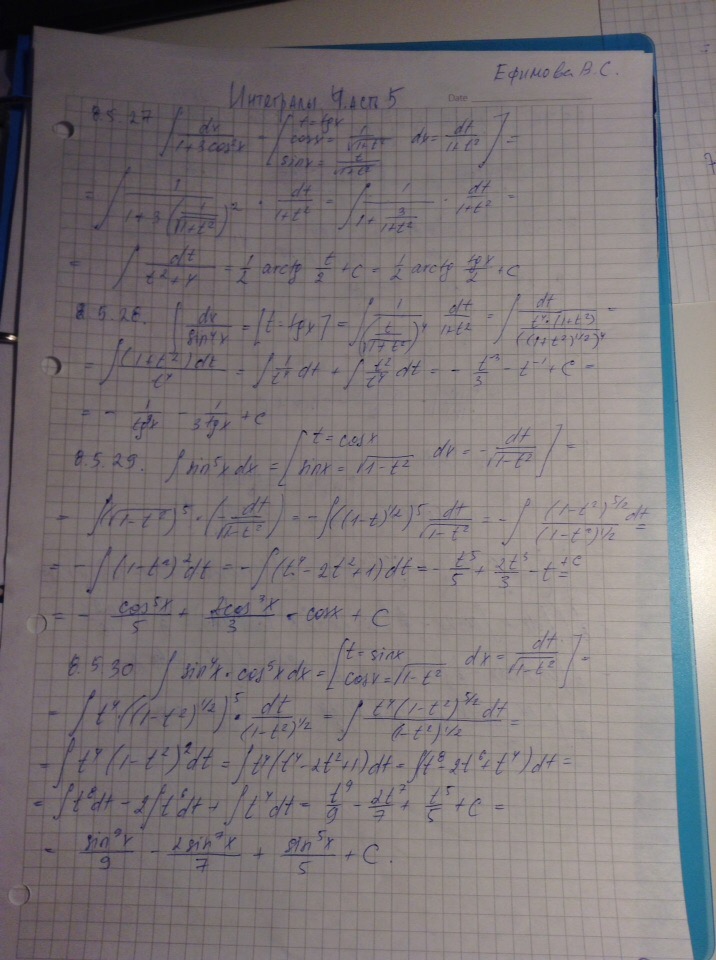 Ефимова В.С.
Интегралы Часть 5
Date
8.5.27 ∫ dx/(1+3cos²x) = [t=tgx cosx = 1/√(1+t²) sinx = t/√(1+t²) dx = dt/(1+t²)] =
= ∫ 1/(1+3(1/√(1+t²))²) · dt/(1+t²) = ∫ 1/(1+3/(1+t²)) · dt/(1+t²) =
= ∫ dt/(t²+4) = 1/2 arctg t/2 + C = 1/2 arctg tgx/2 + C
8.5.28. ∫ dx/sin⁴x = [t=tgx] = ∫ 1/(t/√(1+t²))⁴ dt/(1+t²) = ∫ dt/(t⁴·(1+t²)/((1+t²)^1/2)⁴) =
= ∫ (1+t²)dt/t⁴ = ∫ 1/t⁴ dt + ∫ t²/t⁴ dt = - t⁻³/3 - t⁻¹ + C =
= - 1/tgx - 1/3tgx + C
8.5.29. ∫ sin⁵x dx = [t=cosx sinx = √(1-t²) dx = - dt/√(1-t²)] =
= ∫(√(1-t²))⁵ · (-dt/√(1-t²)) = -∫((1-t)^1/2)⁵ dt/√(1-t²) = -∫ (1-t²)^5/2 dt/(1-t²)^1/2 =
= -∫(1-t²)²dt = -∫(t⁴-2t²+1)dt = - t⁵/5 + 2t³/3 - t + C =
= - cos⁵x/5 + 2cos³x/3 - cosx + C
8.5.30 ∫ sin⁴x·cos⁵x dx = [t=sinx cosx=√(1-t²) dx = dt/√(1-t²)] =
= ∫ t⁴·((1-t²)^1/2)⁵ · dt/(1-t²)^1/2 = ∫ t⁴(1-t²)^5/2 dt/(1-t²)^1/2 =
= ∫ t⁴(1-t²)²dt = ∫t⁴(t⁴-2t²+1)dt = ∫(t⁸-2t⁶+t⁴)dt =
= ∫t⁸dt - 2∫t⁶dt + ∫t⁴dt = t⁹/9 - 2t⁷/7 + t⁵/5 + C =
= sin⁹x/9 - 2sin⁷x/7 + sin⁵x/5 + C.